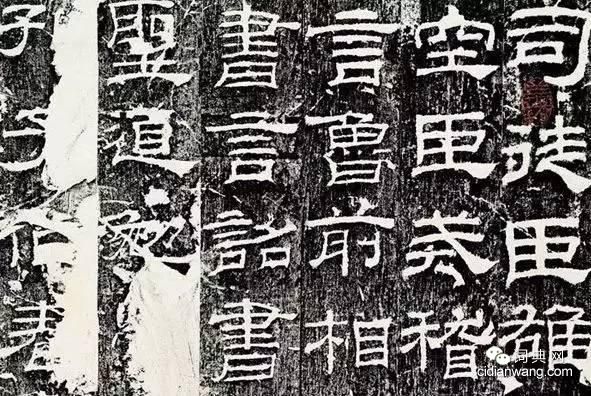 司徒臣雄
空臣戒稽
言魯前相
書言詔書
聖道勉
孔子作春
词典网
cidianwang.com